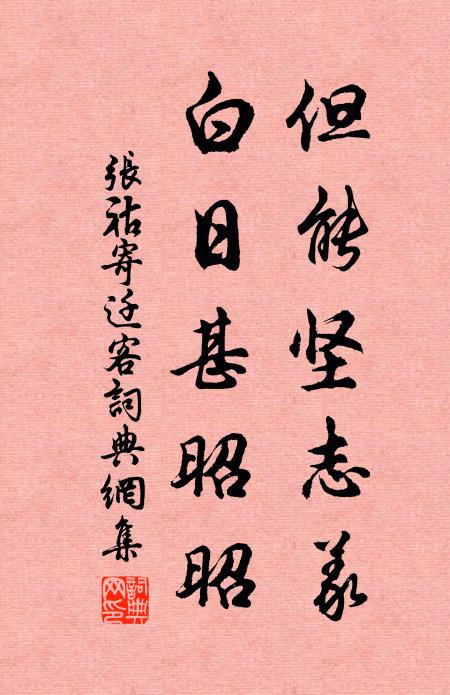 但能坚志义
白日甚昭昭
張祜寄迁客詞典網集
詞典网印